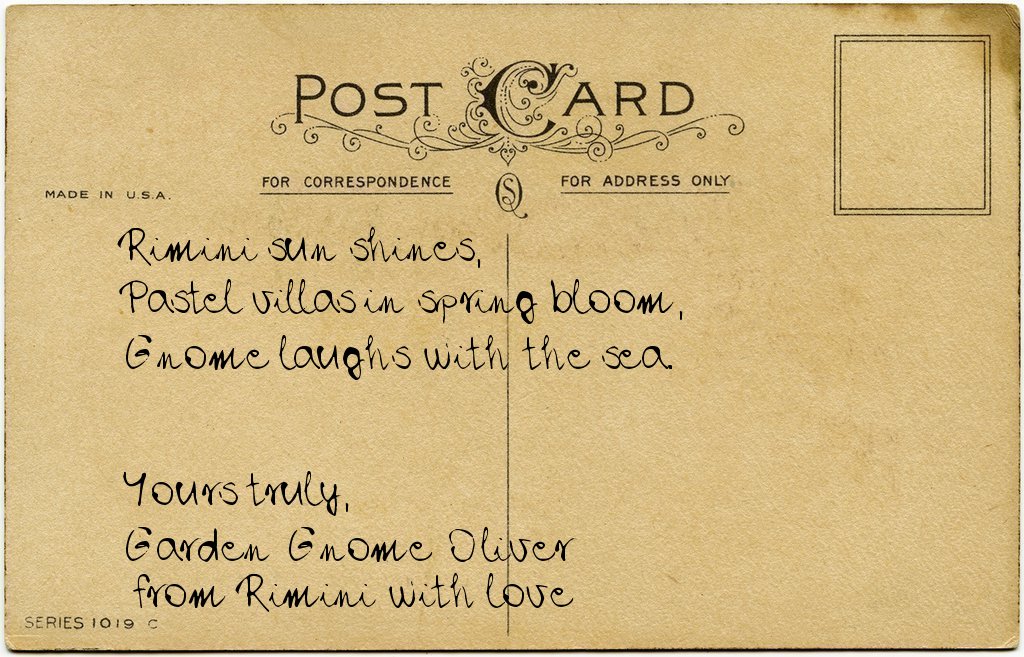 POST CARD
FOR CORRESPONDENCE
FOR ADDRESS ONLY
MADE IN U.S.A.
Rimini sun shines,
Pastel villas in spring bloom,
Gnome laughs with the sea.
Yours truly,
Garden Gnome Oliver
from Rimini with love
SERIES 1019 C